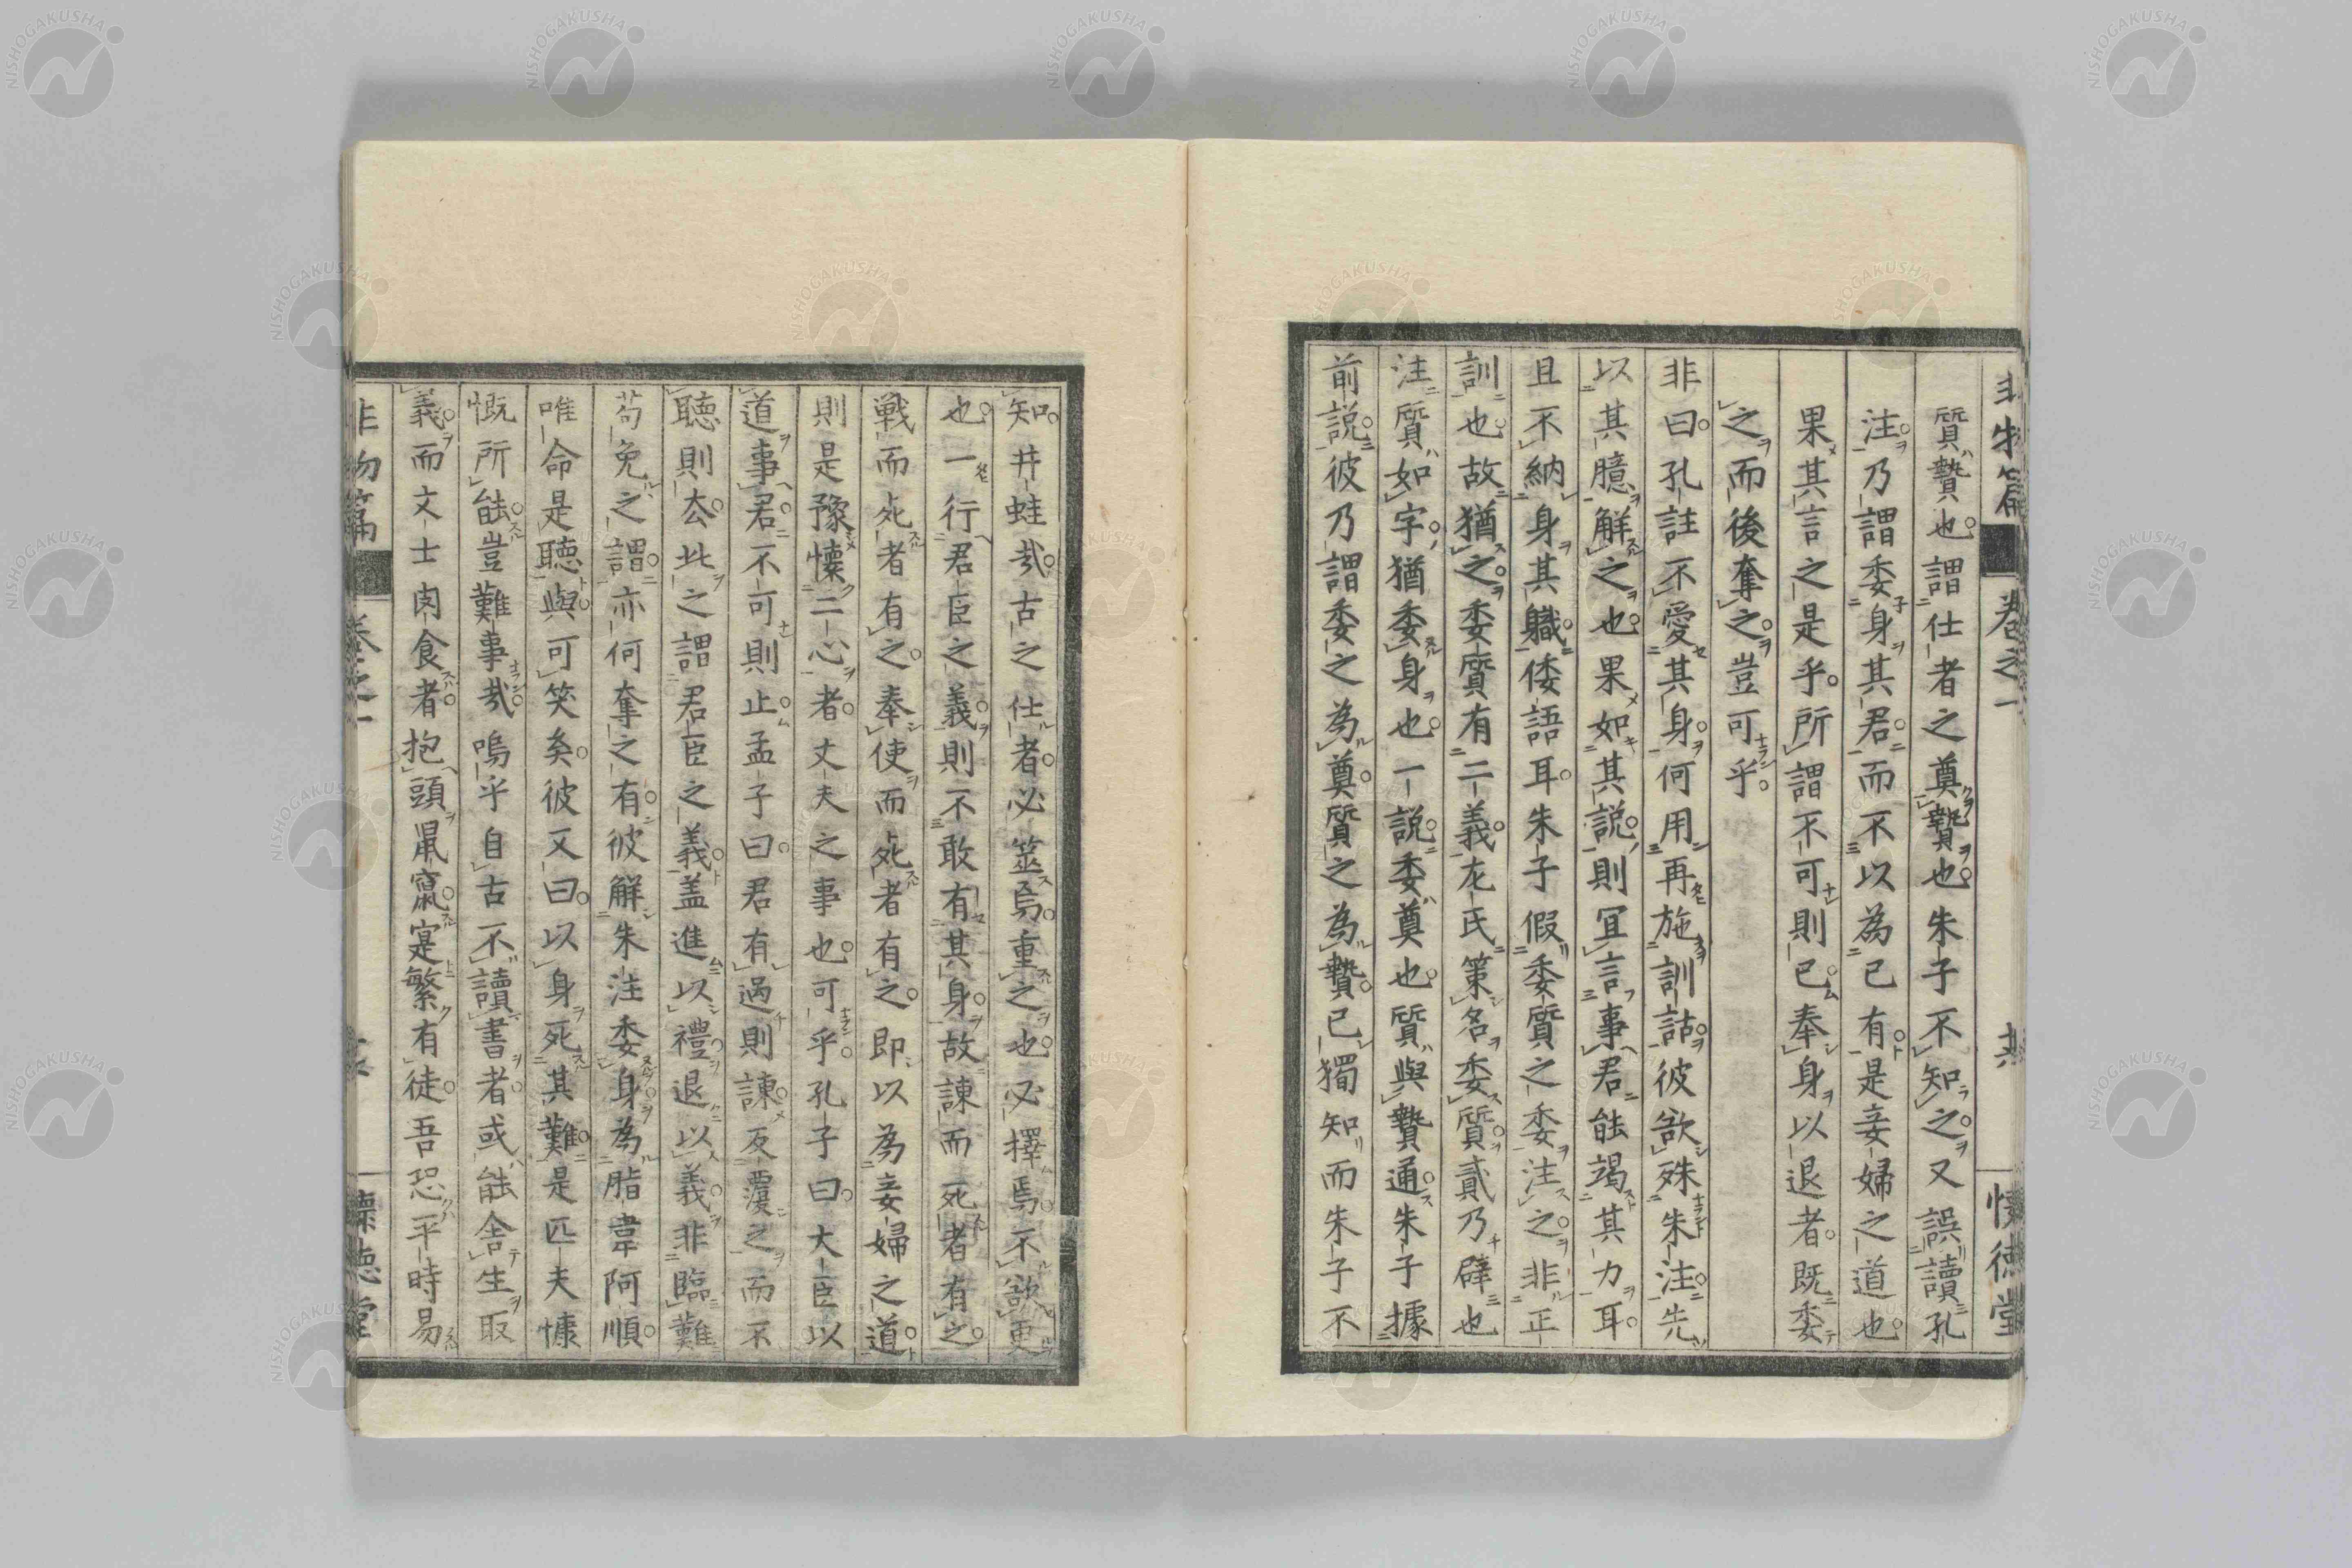 非物篇 卷之一 懷德堂
質贄也謂仕者之奠贄也朱子不知之又誤讀孔
注乃謂委身其君而不以為已有是妾婦之道也
果其言之是乎所謂不可則已奉身以退者既委
之而後奪之豈可乎
非曰孔註不愛其身何用再施訓詁彼欲殊朱注先
以其臆解之也果如其說則冝言事君能竭其力耳
且不納身其職倭語耳朱子假委質之委注之非正
訓也故猶之委質有二義左氏策名委質貳乃辟也
注質如字猶委身也一說委奠也質與贄通朱子據
前說彼乃謂委之為奠質之為贄已獨知而朱子不
知井蛙㢤古之仕者必筮焉重之也必擇焉不欲更
也一行君臣之義則不敢有其身故諫而死者有之
戰而死者有之奉使而死者有之即以為妾婦之道
則是豫懷二心者丈夫之事也可乎孔子曰大臣以
道事君不可則止孟子曰君有過則諫反覆之而不
聽則去此之謂君臣之義盖進以禮退以義非臨難
苟免之謂亦何奪之有彼解朱注委身為脂韋阿順
唯命是聽與可笑矣彼又曰以身死其難是匹夫慷
慨所能豈難事㢤嗚乎自古不讀書者或能舍生取
義而文士肉食者抱頭鼠竄寔繁有徒吾恐平時易
非物篇 卷之一 懷德堂